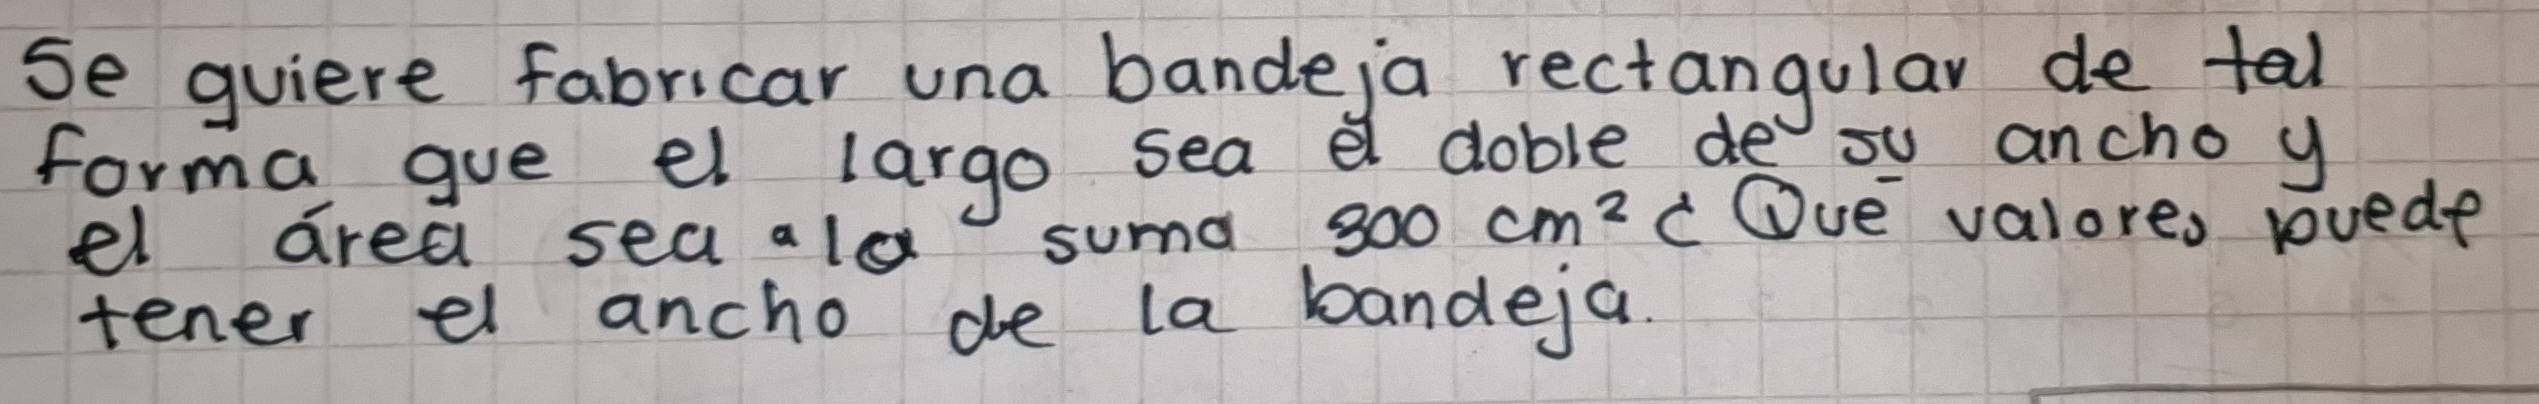 Se quiere fabricar una bandeja rectangular de tal
forma que el largo sea el doble de su ancho y
el área sea a la suma 300 cm² ¿Qué valores puede
tener el ancho de la bandeja.